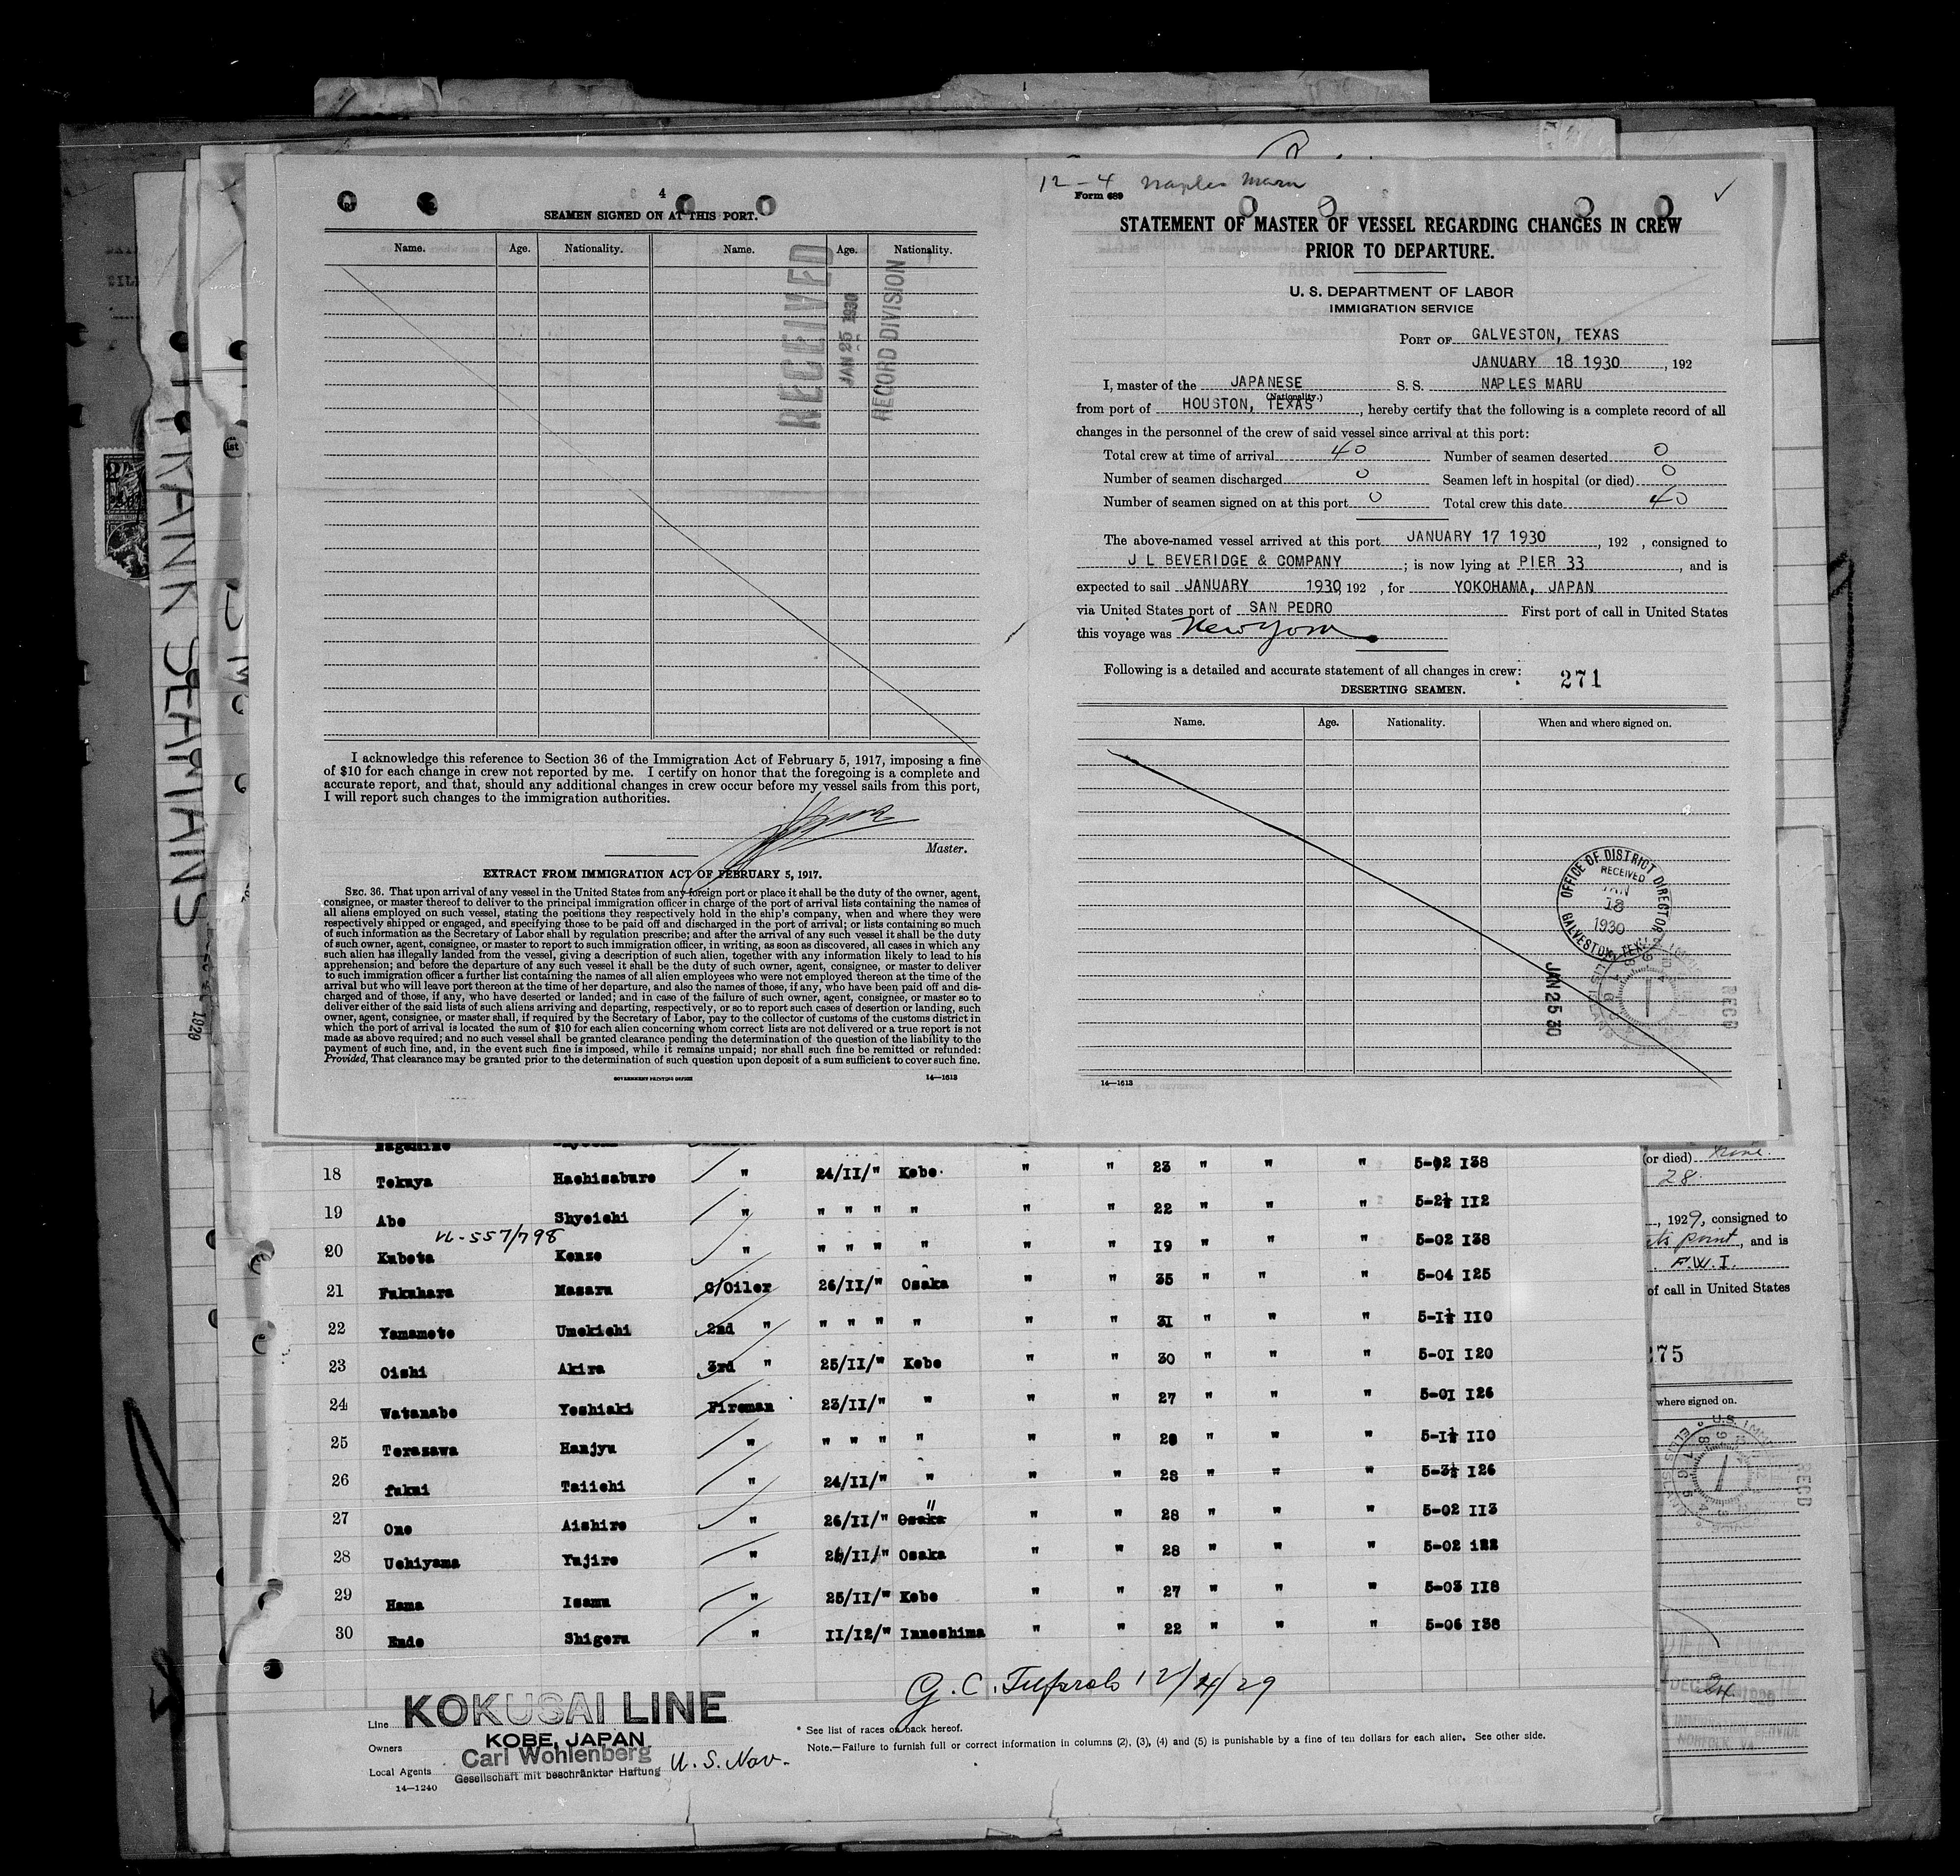 4
SEAMEN SIGNED ON AT THIS PORT.
Name. Age. Nationality. Name. Age. Nationality.
RECEIVED
JAN 25 1930
RECORD DIVISION
I acknowledge this reference to Section 36 of the Immigration Act of February 5, 1917, imposing a fine
of $10 for each change in crew not reported by me. I certify on honor that the foregoing is a complete and
accurate report, and that, should any additional changes in crew occur before my vessel sails from this port,
I will report such changes to the immigration authorities.
Master.
EXTRACT FROM IMMIGRATION ACT OF FEBRUARY 5, 1917.
SEC. 36. That upon arrival of any vessel in the United States from any foreign port or place it shall be the duty of the owner, agent,
consignee, or master thereof to deliver to the principal immigration officer in charge of the port of arrival lists containing the names of
all aliens employed on such vessel, stating the positions they respectively hold in the ship's company, when and where they were
respectively shipped or engaged, and specifying those to be paid off and discharged in the port of arrival; or lists containing so much
of such information as the Secretary of Labor shall by regulation prescribe; and after the arrival of any such vessel it shall be the duty
of such owner, agent, consignee, or master to report to such immigration officer, in writing, as soon as discovered, all cases in which any
such alien has illegally landed from the vessel, giving a description of such alien, together with any information likely to lead to his
apprehension; and before the departure of any such vessel it shall be the duty of such owner, agent, consignee, or master to deliver
to such immigration officer a further list containing the names of all alien employees who were not employed thereon at the time of the
arrival but who will leave port thereon at the time of her departure, and also the names of those, if any, who have been paid off and dis-
charged and of those, if any, who have deserted or landed; and in case of the failure of such owner, agent, consignee, or master so to
deliver either of the said lists of such aliens arriving and departing, respectively, or so to report such cases of desertion or landing, such
owner, agent, consignee, or master shall, if required by the Secretary of Labor, pay to the collector of customs of the customs district in
which the port of arrival is located the sum of $10 for each alien concerning whom correct lists are not delivered or a true report is not
made as above required; and no such vessel shall be granted clearance pending the determination of the question of the liability to the
payment of such fine, and, in the event such fine is imposed, while it remains unpaid; nor shall such fine be remitted or refunded:
Provided, That clearance may be granted prior to the determination of such question upon deposit of a sum sufficient to cover such fine.
GOVERNMENT PRINTING OFFICE 14—1613
12-4 Naples Maru
Form 689
STATEMENT OF MASTER OF VESSEL REGARDING CHANGES IN CREW
PRIOR TO DEPARTURE.
U. S. DEPARTMENT OF LABOR
IMMIGRATION SERVICE
PORT OF GALVESTON, TEXAS
JANUARY 18 1930, 192
I, master of the JAPANESE S. S. NAPLES MARU
(Nationality.)
from port of HOUSTON, TEXAS, hereby certify that the following is a complete record of all
changes in the personnel of the crew of said vessel since arrival at this port:
Total crew at time of arrival 40 Number of seamen deserted 0
Number of seamen discharged 0 Seamen left in hospital (or died) 0
Number of seamen signed on at this port 0 Total crew this date 40
The above-named vessel arrived at this port JANUARY 17 1930, 192 , consigned to
J L BEVERIDGE & COMPANY; is now lying at PIER 33, and is
expected to sail JANUARY 1930, 192 , for YOKOHAMA, JAPAN
via United States port of SAN PEDRO First port of call in United States
this voyage was New York
Following is a detailed and accurate statement of all changes in crew:
271
DESERTING SEAMEN.
Name. Age. Nationality. When and where signed on.
OFFICE OF DISTRICT DIRECTOR
RECEIVED
JAN
18
1930
GALVESTON, TEX.
JAN 25 30
REC'D
14—1613
18 Tokuya Hachisaburo " 24/II/" Kobe " " 23 " " " 5-02 I38
19 Abo Shyoichi " " " " " " " 22 " " " 5-2½ II2
VL-557/798
20 Kubota Kenzo " " " " " " " I9 " " " 5-02 I38
21 Fukuhara Masaru C/Oiler 26/II/" Osaka " " 35 " " " 5-04 I25
22 Yamamoto Umekichi 2nd " " " " " " " 31 " " " 5-I½ II0
23 Oishi Akira 3rd " 25/II/" Kobe " " 30 " " " 5-0I I20
24 Watanabe Yoshiaki Fireman 23/II/" " " " 27 " " " 5-0I I26
25 Terazawa Hanjyu " " " " " " " 28 " " " 5-I½ II0
26 fukui Taiichi " 24/II/" " " " 28 " " " 5-3½ I26
27 Ono Aishiro " 26/II/" Osaka " " " 28 " " " 5-02 II3
28 Uchiyama Yujiro " 26/II/" Osaka " " 28 " " " 5-02 I22
29 Hama Isamu " 25/II/" Kobe " " 27 " " " 5-03 II8
30 Endo Shigeru " II/12/" Innoshima " " 22 " " " 5-06 I38
12/4/29
Line KOKUSAI LINE
Owners KOBE, JAPAN
Local Agents Carl Wohlenberg U. S. Nav.
Gesellschaft mit beschränkter Haftung
14—1240
* See list of races on back hereof.
Note.—Failure to furnish full or correct information in columns (2), (3), (4) and (5) is punishable by a fine of ten dollars for each alien. See other side.
(or died)
28
, 1929, consigned to
point, and is
F.W.I.
of call in United States
275
where signed on.
REC'D
24
NORFOLK, VA.
FRANK SEAMANS
1929
1st